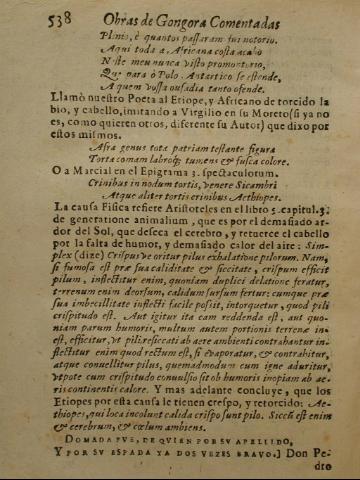 538 Obras de Gongora Comentadas
Plinio, è quantos passaram fui notorio.
Aqui toda a Africana costa acabo
Neste meu nunca visto promontorio,
Que para ò Polo Antartico se estende,
A quem vossa ousadia tanto ofende.
Llamò nuestro Poeta al Etiope, y Africano de torcido la
bio, y cabello, imitando a Virgilio en su Moreto (si ya no
es, como quieren otros, diferente su Autor) que dixo por
estos mismos.
Afra genus tota patriam testante figura
Torta comam labroq; tumens & fusca colore.
O a Marcial en el Epigrama 3. spectaculorum.
Crinibus in nodum tortis, venere Sicambri
Atque aliter tortis crinibus Aethiopes.
La causa Fisica refiere Aristoteles en el libro 5. capitul. 3.
de generatione animalium, que es por el demasiado ar-
dor del Sol, que deseca el cerebro, y retuerce el cabello
por la falta de humor, y demasiado calor del aire: Sim-
plex (dize) Crispus ve oritur pilus exhalatione pilorum. Nam,
si fumosa est præ sua caliditate & siccitate, crispum efficit
pilum, inflectitur enim, quoniam duplici delatione feratur,
terrenum enim deorsum, calidum sursum fertur: cumque præ
sua imbecillitate inflecti facile possit, intorquetur, quod pili
crispitudo est. Aut igitur ita eam reddenda est, aut quo-
niam parum humoris, multum autem portionis terrenæ in-
est, efficitur, vt pili resiccati ab aere ambienti contrahantur in-
flectitur enim quod rectum est, si evaporatur, & contrahitur,
atque convellitur pilus, quemadmodum cum igne aduritur,
vtpote cum crispitudo convulsio sit ob humoris inopiam ab ae-
ris continentis calore. Y mas adelante concluye, que los
Etiopes por esta causa le tienen crespo, y retorcido: Ae-
thiopes, qui loca incolunt calida crispo sunt pilo. Siccũ est enim
& cerebrum, & cœlum ambiens.
DOMADA FUE, DE QUIEN POR SU APELLIDO,
Y POR SU ESPADA YA DOS VEZES BRAVO.] Don Pe-
dro